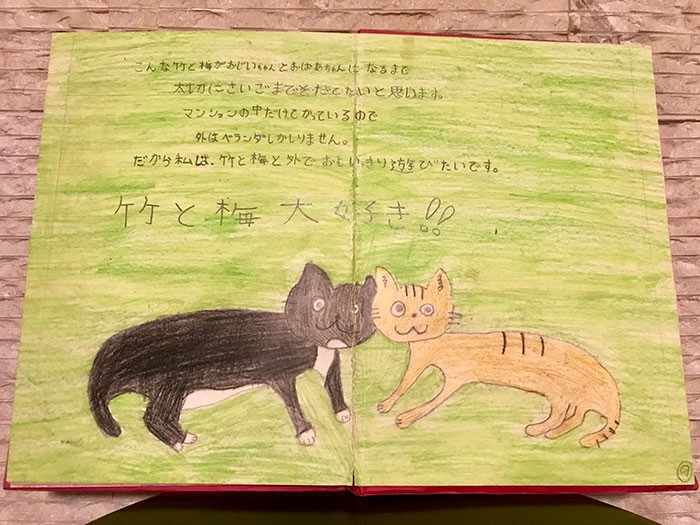 こんな竹と梅がおじいちゃんとおばあちゃんになるまで
大切にさいごまでそだてたいと思います。
マンションの中だけでかっているので
外はベランダしかしりません。
だから私は、竹と梅と外でおもいっきり遊びたいです。
竹と梅大好き!!
9